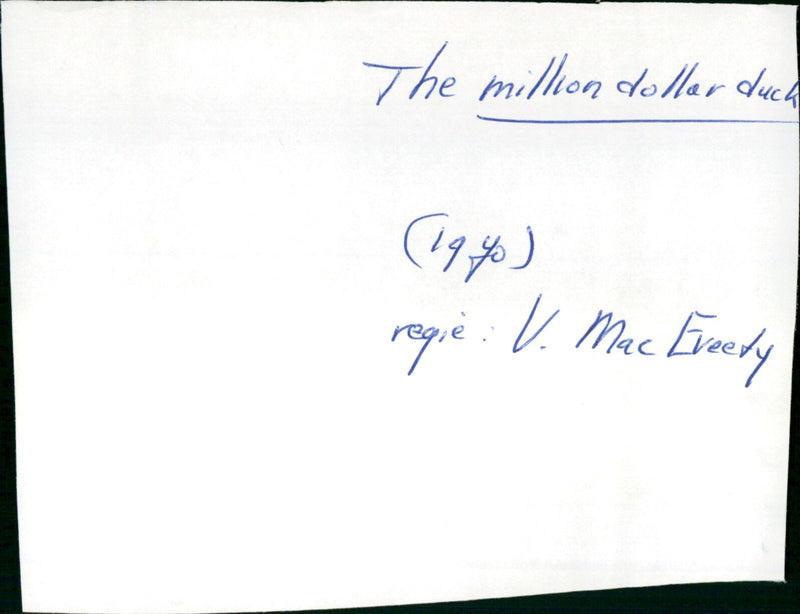 The million dollar duck
(1970)
regie: V. Mac Eveety